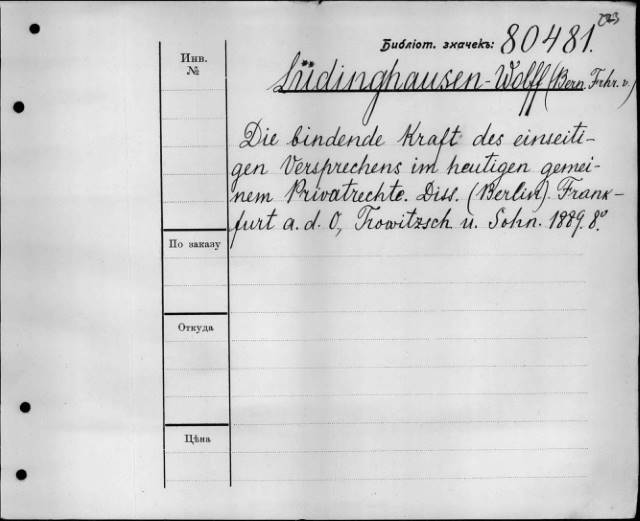 Библіот. значекъ: 80481.
Инв.
№
Lüdinghausen-Wolff (Bern. Frhr. v.)
Die bindende Kraft des einseiti-
gen Versprechens im heutigen gemei-
nem Privatrechte. Diss. (Berlin). Frank-
furt a. d. O, Trowitzsch u. Sohn. 1889. 8º
По заказу
Откуда
Цѣна